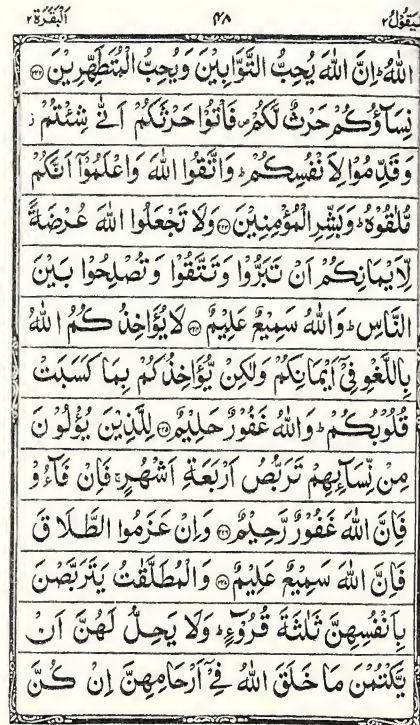 اَلْبَقَرَة٢ ٤٨ سَيَقُوْلُ٢
اللّٰهُ ؕ اِنَّ اللّٰهَ يُحِبُّ التَّوَّابِيْنَ وَيُحِبُّ الْمُتَطَهِّرِيْنَ ﴿۲۲۲﴾
نِسَآؤُكُمْ حَرْثٌ لَّكُمْ ۪ فَاْتُوْا حَرْثَكُمْ اَنّٰى شِئْتُمْ ز
وَقَدِّمُوْا لِاَنْفُسِكُمْ ؕ وَاتَّقُوا اللّٰهَ وَاعْلَمُوْۤا اَنَّكُمْ
مُّلٰقُوْهُ ؕ وَبَشِّرِ الْمُؤْمِنِيْنَ ﴿۲۲۳﴾ وَلَا تَجْعَلُوا اللّٰهَ عُرْضَةً
لِّاَيْمَانِكُمْ اَنْ تَبَرُّوْا وَتَتَّقُوْا وَتُصْلِحُوْا بَيْنَ
النَّاسِ ؕ وَاللّٰهُ سَمِيْعٌ عَلِيْمٌ ﴿۲۲۴﴾ لَا يُؤَاخِذُ كُمُ اللّٰهُ
بِاللَّغْوِ فِيْۤ اَيْمَانِكُمْ وَلٰكِنْ يُّؤَاخِذُكُمْ بِمَا كَسَبَتْ
قُلُوْبُكُمْ ؕ وَاللّٰهُ غَفُوْرٌ حَلِيْمٌ ﴿۲۲۵﴾ لِلَّذِيْنَ يُؤْلُوْنَ
مِنْ نِّسَآئِهِمْ تَرَبُّصُ اَرْبَعَةِ اَشْهُرٍ ۚ فَاِنْ فَآءُوْ
فَاِنَّ اللّٰهَ غَفُوْرٌ رَّحِيْمٌ ﴿۲۲۶﴾ وَاِنْ عَزَمُوا الطَّلَاقَ
فَاِنَّ اللّٰهَ سَمِيْعٌ عَلِيْمٌ ﴿۲۲۷﴾ وَالْمُطَلَّقٰتُ يَتَرَبَّصْنَ
بِاَنْفُسِهِنَّ ثَلٰثَةَ قُرُوْٓءٍ ؕ وَلَا يَحِلُّ لَهُنَّ اَنْ
يَّكْتُمْنَ مَا خَلَقَ اللّٰهُ فِيْۤ اَرْحَامِهِنَّ اِنْ كُنَّ